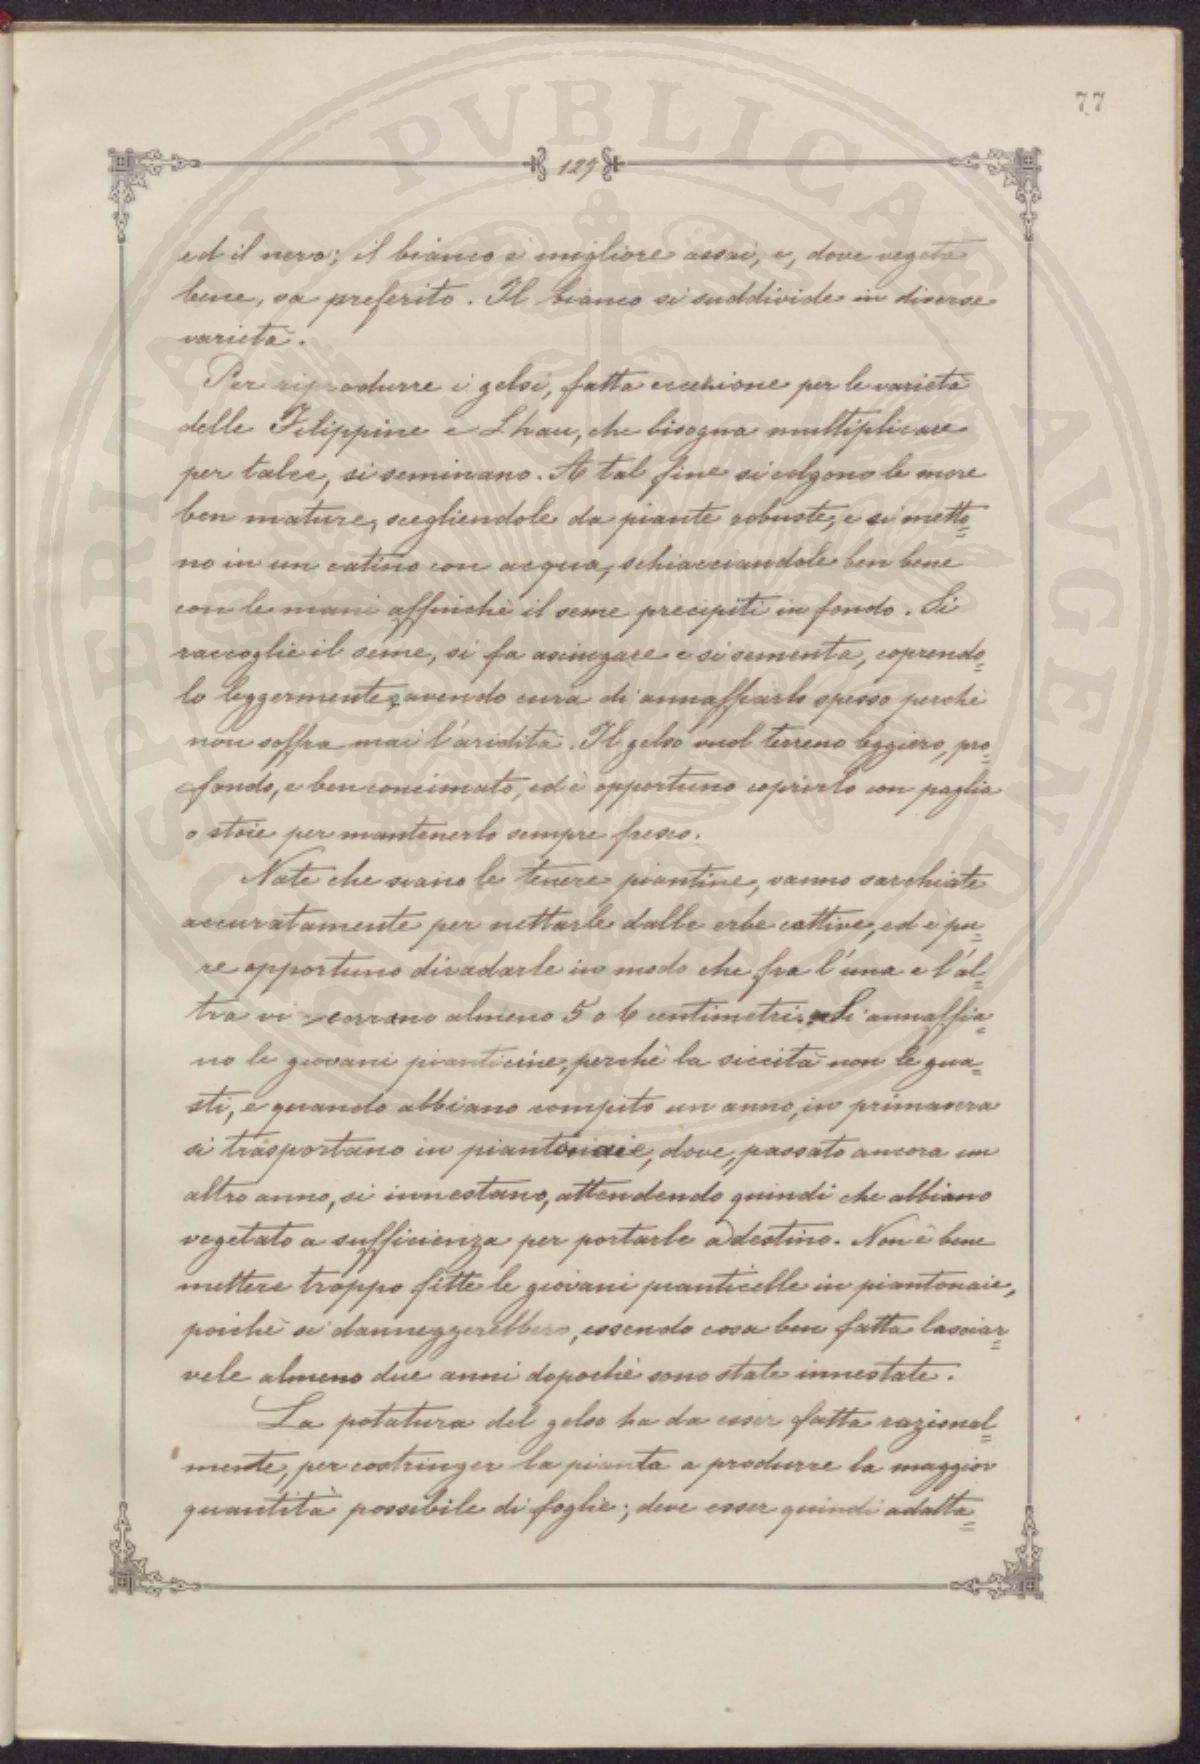 77
129
ed il nero; il bianco è migliore assai, e, dove vegeta
bene, va preferito. Il bianco si suddivide in diverse
varietà.
Per riprodurre i gelsi, fatta eccezione per le varietà
delle Filippine e Lhau, che bisogna multiplicare
per talee, si seminano. A tal fine si colgono le more
ben mature, scegliendole da piante robuste, e si metto=
no in un catino con acqua, schiacciandole ben bene
con le mani affinchè il seme precipiti in fondo. Si
raccoglie il seme, si fa asciugare e si sementa, coprendo=
lo leggermente, avendo cura di annaffiarlo spesso perchè
non soffra mai l'aridità. Il gelso vuol terreno leggiero, pro=
fondo, e ben concimato, ed è opportuno coprirlo con paglia
o stoie per mantenerlo sempre fresco.
Nate che siano le tenere piantine, vanno sarchiate
accuratamente per nettarle dalle erbe cattive, ed è pu=
re opportuno diradarle in modo che fra l'una e l'al=
tra vi corrano almeno 5 o 6 centimetri. Si annaffia=
no le giovani pianticine, perchè la siccità non le gua=
sti, e quando abbiano compito un anno, in primavera
si trasportano in piantonaie, dove, passato ancora un
altro anno, si innestano, attendendo quindi che abbiano
vegetato a sufficienza per portarle a destino. Non è bene
mettere troppo fitte le giovani pianticelle in piantonaie,
poichè si danneggerebbero, essendo cosa ben fatta lasciar=
vele almeno due anni dopochè sono state innestate.
La potatura del gelso ha da esser fatta razional=
mente, per costringer la pianta a produrre la maggior
quantità possibile di foglie; deve esser quindi adatta=